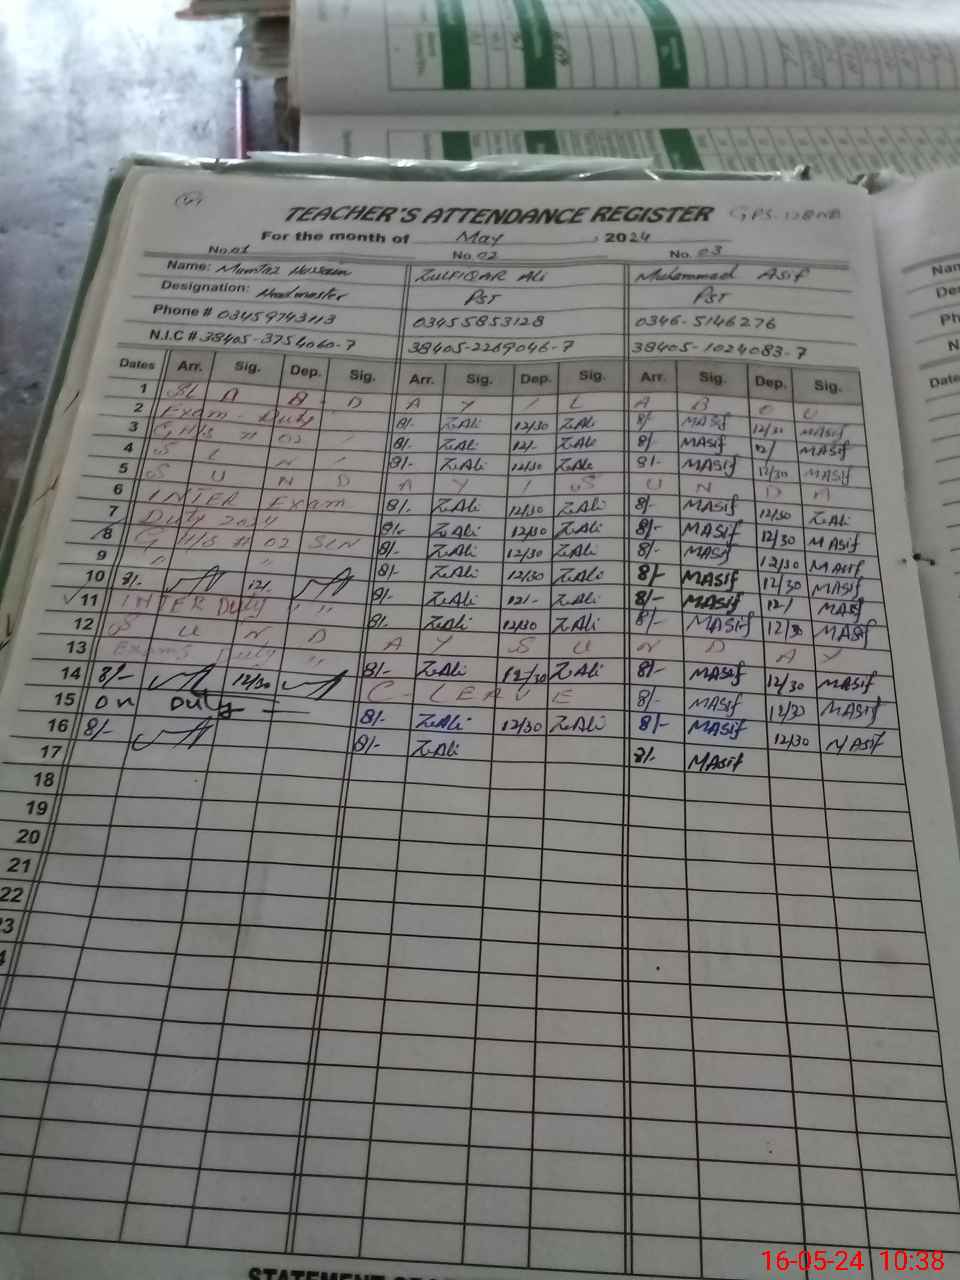 TEACHER'S ATTENDANCE REGISTER GPS-128NB
For the month of May , 2024
No.01 No.02 No.03
Name: Mumtaz Hussain ZULFIQAR Ali Muhammad Asif
Designation: Headmaster PST PST
Phone # 03459743113 03455853128 0346-5146276
N.I.C # 38405-3754060-7 38405-2269046-7 38405-1024083-7
Dates Arr. Sig. Dep. Sig. Arr. Sig. Dep. Sig. Arr. Sig. Dep. Sig.
1 A Y L A B O U
2 Exam Duty 8/- Z.Ali 12/30 Z.Ali 8/- MASif 12/30 MASif
3 G H/S # 02 8/- Z.Ali 12/- Z.Ali 8/- MASif 12/ MASif
4 S L N 8/- Z.Ali 12/30 Z.Ali 8/- MASif 12/30 MASif
5 S U N D A Y S U N D A
6 INTER Exam 8/- Z.Ali 12/30 Z.Ali 8/- MASif 12/30 Z.Ali
7 Duty 2024 8/- Z.Ali 12/30 Z.Ali 8/- MASif 12/30 MASif
8 G H/S # 02 SLN 8/- Z.Ali 12/30 Z.Ali 8/- MASif 12/30 MASif
9 " " 8/- Z.Ali 12/30 Z.Ali 8/- MASif 12/30 MASif
10 8/- 12/- 8/- Z.Ali 12/- Z.Ali 8/- MASif 12/ MASif
11 INTER Duty " " 8/- Z.Ali 12/30 Z.Ali 8/- MASif 12/30 MASif
12 S U N D A Y S U N D A Y
13 Exams Duty " 8/- Z.Ali 12/30 Z.Ali 8/- MASif 12/30 MASif
14 8/- 12/30 C - LEAVE 8/- MASif 12/30 MASif
15 on Duty = 8/- Z.Ali 12/30 Z.Ali 8/- MASif 12/30 MASif
16 8/- 8/- Z.Ali 8/- MASif
17
18
19
20
21
22
16-05-24 10:38